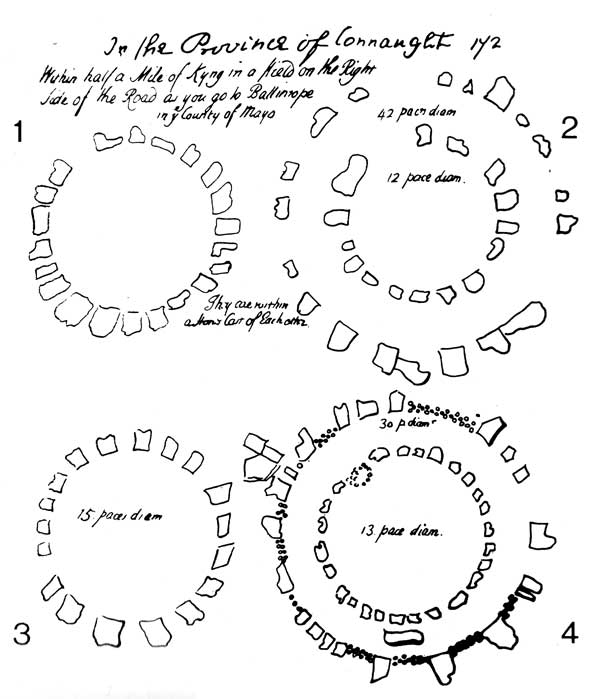 In the Province of Connaught 172
Within half a Mile of Kyng in a Field on the Right
Side of the Road as you go to Ballinrope
in yᵉ County of Mayo
1
2
42 pacn diam
12 pace diam.
They are within
a Stons Cast of Each other.
15 paces diam
30 p diamʳ
13 pace diam.
3
4